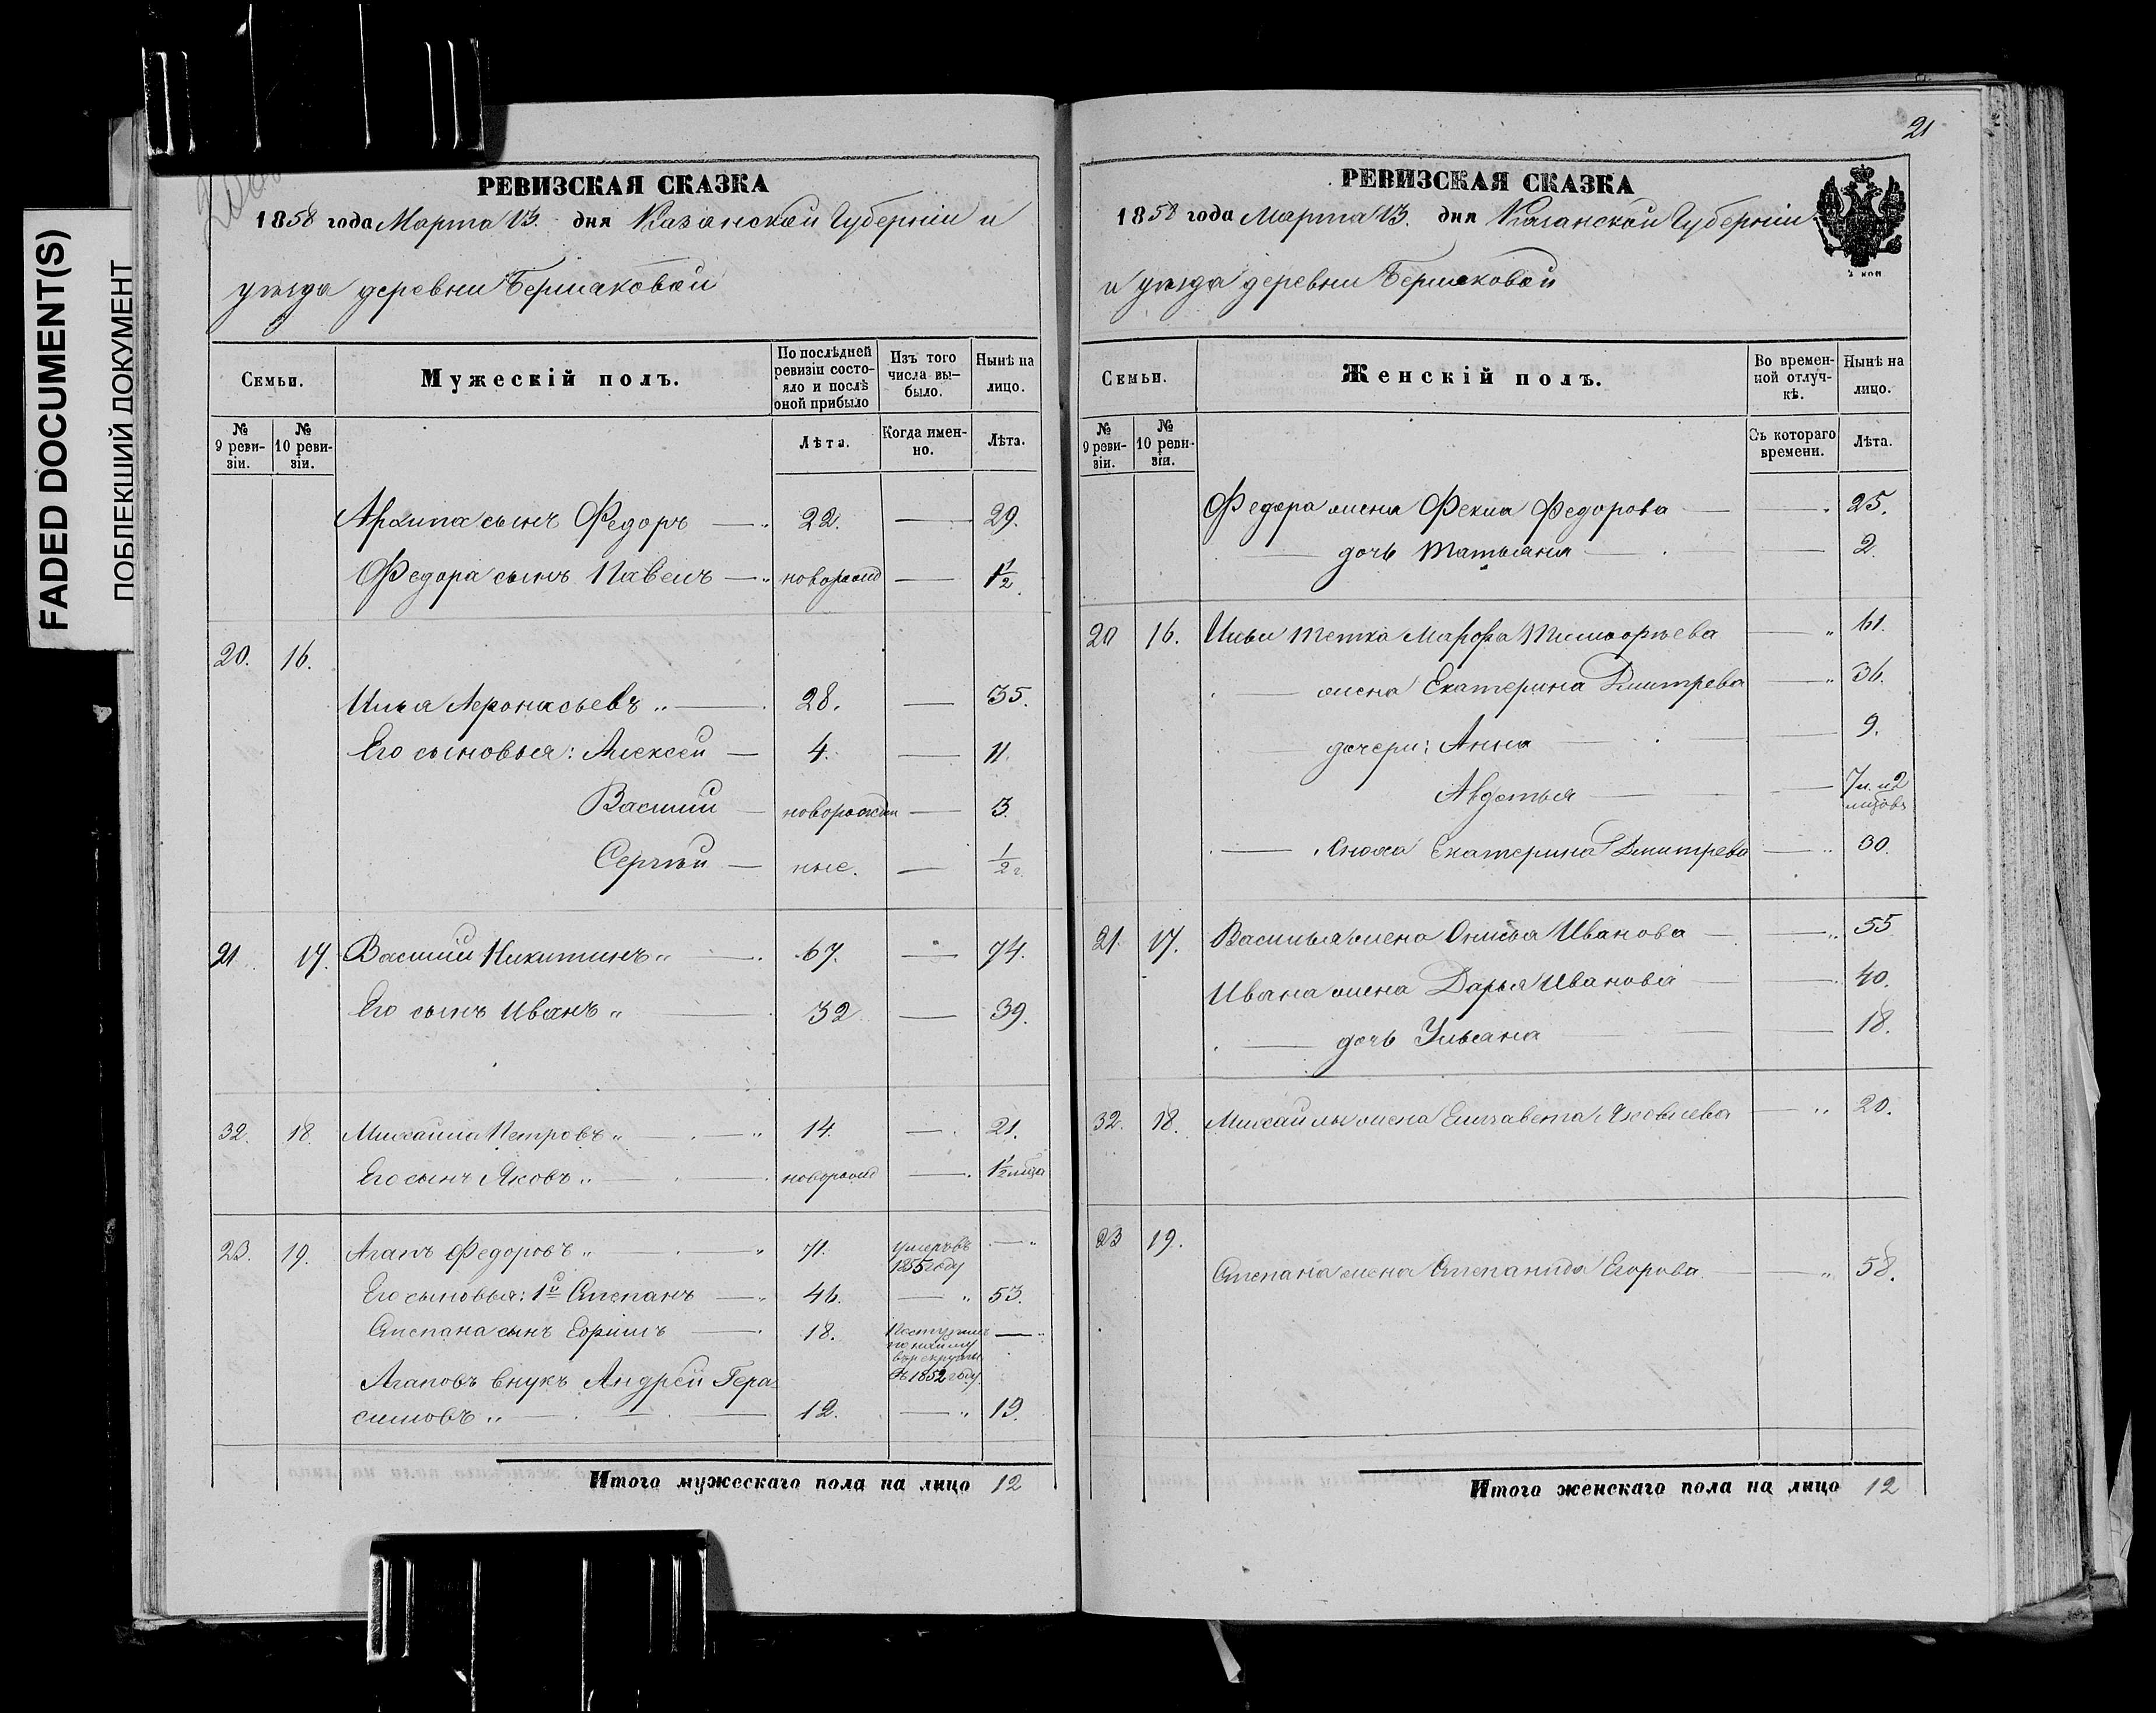 FADED DOCUMENT(S)
ПОБЛЕКШИЙ ДОКУМЕНТ
РЕВИЗСКАЯ СКАЗКА
1858 года Марта 13. дня Казанской Губерніи и
уѣзда деревни Бермаковой
Семьи.
Мужескій полъ.
По послѣдней ревизіи состояло и послѣ оной прибыло
Изъ того числа выбыло.
Нынѣ на лицо.
№ 9 ревизіи.
№ 10 ревизіи.
Лѣта.
Когда именно.
Лѣта.
Архипа сынъ Федоръ — 22. — 29.
Федора сынъ Павелъ — новорожд — 1 1/2.
20. 16.
Илья Афонасьевъ „ — 28. — 35.
Его сыновья: Алексей — 4. — 11.
Василій — новорожден — 3.
Сергѣй — ные. — 1/2 г.
21. 17. Василій Никитинъ „ — 67. — 74.
Его сынъ Иванъ „ — 32 — 39.
32. 18. Михайла Петровъ „ — 14. — 21.
Его сынъ Яковъ „ — новорожд — 1 1/2 мѣца
23. 19. Агапъ Федоровъ „ — 71. умеръ въ 1855 году —
Его сыновья: 1й Степанъ — 46. — „ 53.
Степана сынъ Ефимъ — 18. Поступилъ по найму въ рекруты въ 1852 году. —
Агаповъ внукъ Андрей Гера-
симовъ „ — 12. — „ 19.
Итого мужескаго пола на лицо 12
21
РЕВИЗСКАЯ СКАЗКА
1858 года Марта 13. дня Казанской Губерніи
и уѣзда деревни Бермаковой
Семьи.
Женскій полъ.
Во временной отлучкѣ.
Нынѣ на лицо.
№ 9 ревизіи.
№ 10 ревизіи.
Съ котораго времени.
Лѣта.
Федора жена Фекла Федорова — 25.
— дочь Татьяна — 2.
20 16. Ильи тетка Марфа Тимофѣева — „ 61.
— жена Екатерина Дмитрева — „ 36.
— дочери: Анна — 9.
Авдотья — 7 м. и 2
— Екатерина Дмитрева — 30.
21. 17. Василья жена Онисья Иванова — „ 55
Ивана жена Дарья Иванова — 40.
— дочь Ульяна — 18.
32. 18. Михайлы жена Елизавета Яковлева — „ 20.
23 19.
Степана жена Степанида Егорова — „ 58.
Итого женскаго пола на лицо 12